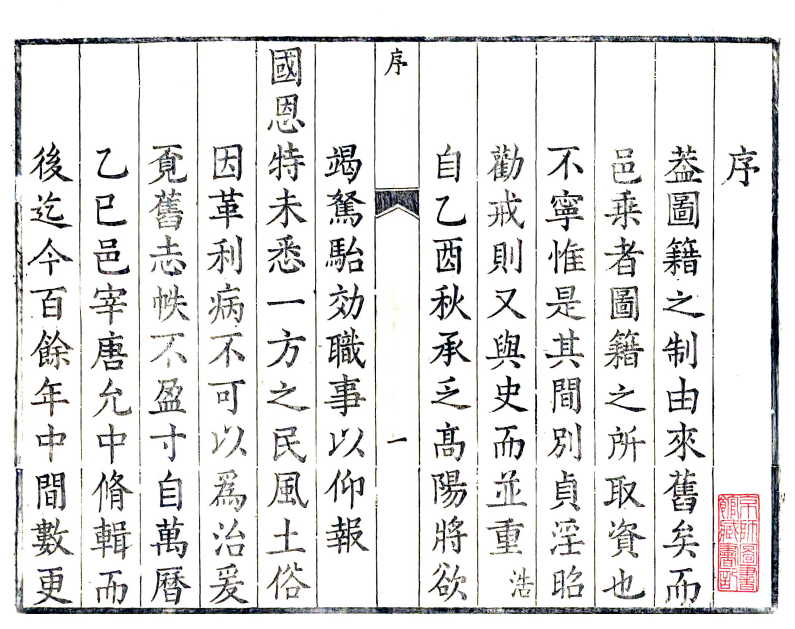 序
葢圖籍之制由來舊矣而
邑乗者圖籍之所取資也
不寧惟是其間別貞淫昭
勸戒則又與史而並重浩
自乙酉秋承乏髙陽將欲
序
一
竭駑駘効職事以仰報
國恩特未悉一方之民風土俗
因革利病不可以爲治爰
覔舊志帙不盈寸自萬曆
乙巳邑宰唐允中脩輯而
後迄今百餘年中間數更
京師圖書
館藏書記